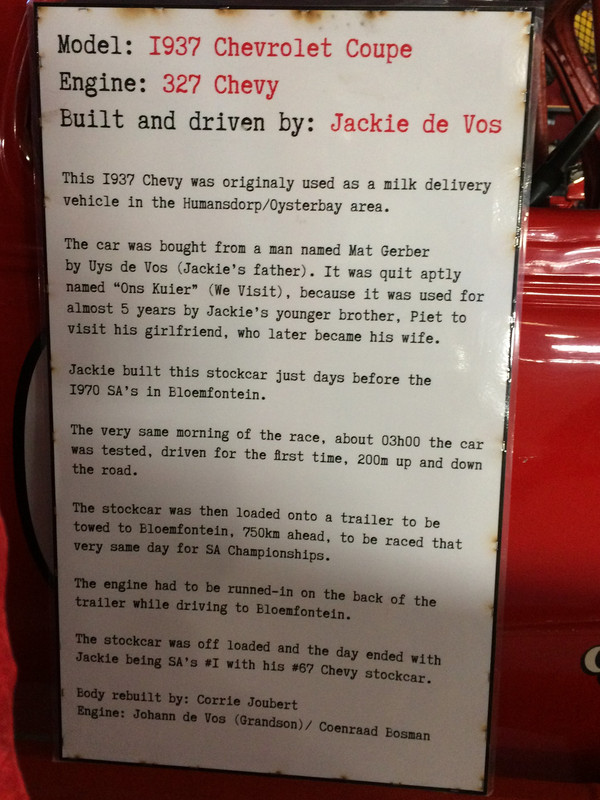 Model: I937 Chevrolet Coupe
Engine: 327 Chevy
Built and driven by: Jackie de Vos
This I937 Chevy was originaly used as a milk delivery
vehicle in the Humansdorp/Oysterbay area.
The car was bought from a man named Mat Gerber
by Uys de Vos (Jackie's father). It was quit aptly
named "Ons Kuier" (We Visit), because it was used for
almost 5 years by Jackie's younger brother, Piet to
visit his girlfriend, who later became his wife.
Jackie built this stockcar just days before the
I970 SA's in Bloemfontein.
The very same morning of the race, about 03h00 the car
was tested, driven for the first time, 200m up and down
the road.
The stockcar was then loaded onto a trailer to be
towed to Bloemfontein, 750km ahead, to be raced that
very same day for SA Championships.
The engine had to be runned-in on the back of the
trailer while driving to Bloemfontein.
The stockcar was off loaded and the day ended with
Jackie being SA's #I with his #67 Chevy stockcar.
Body rebuilt by: Corrie Joubert
Engine: Johann de Vos (Grandson)/ Coenraad Bosman